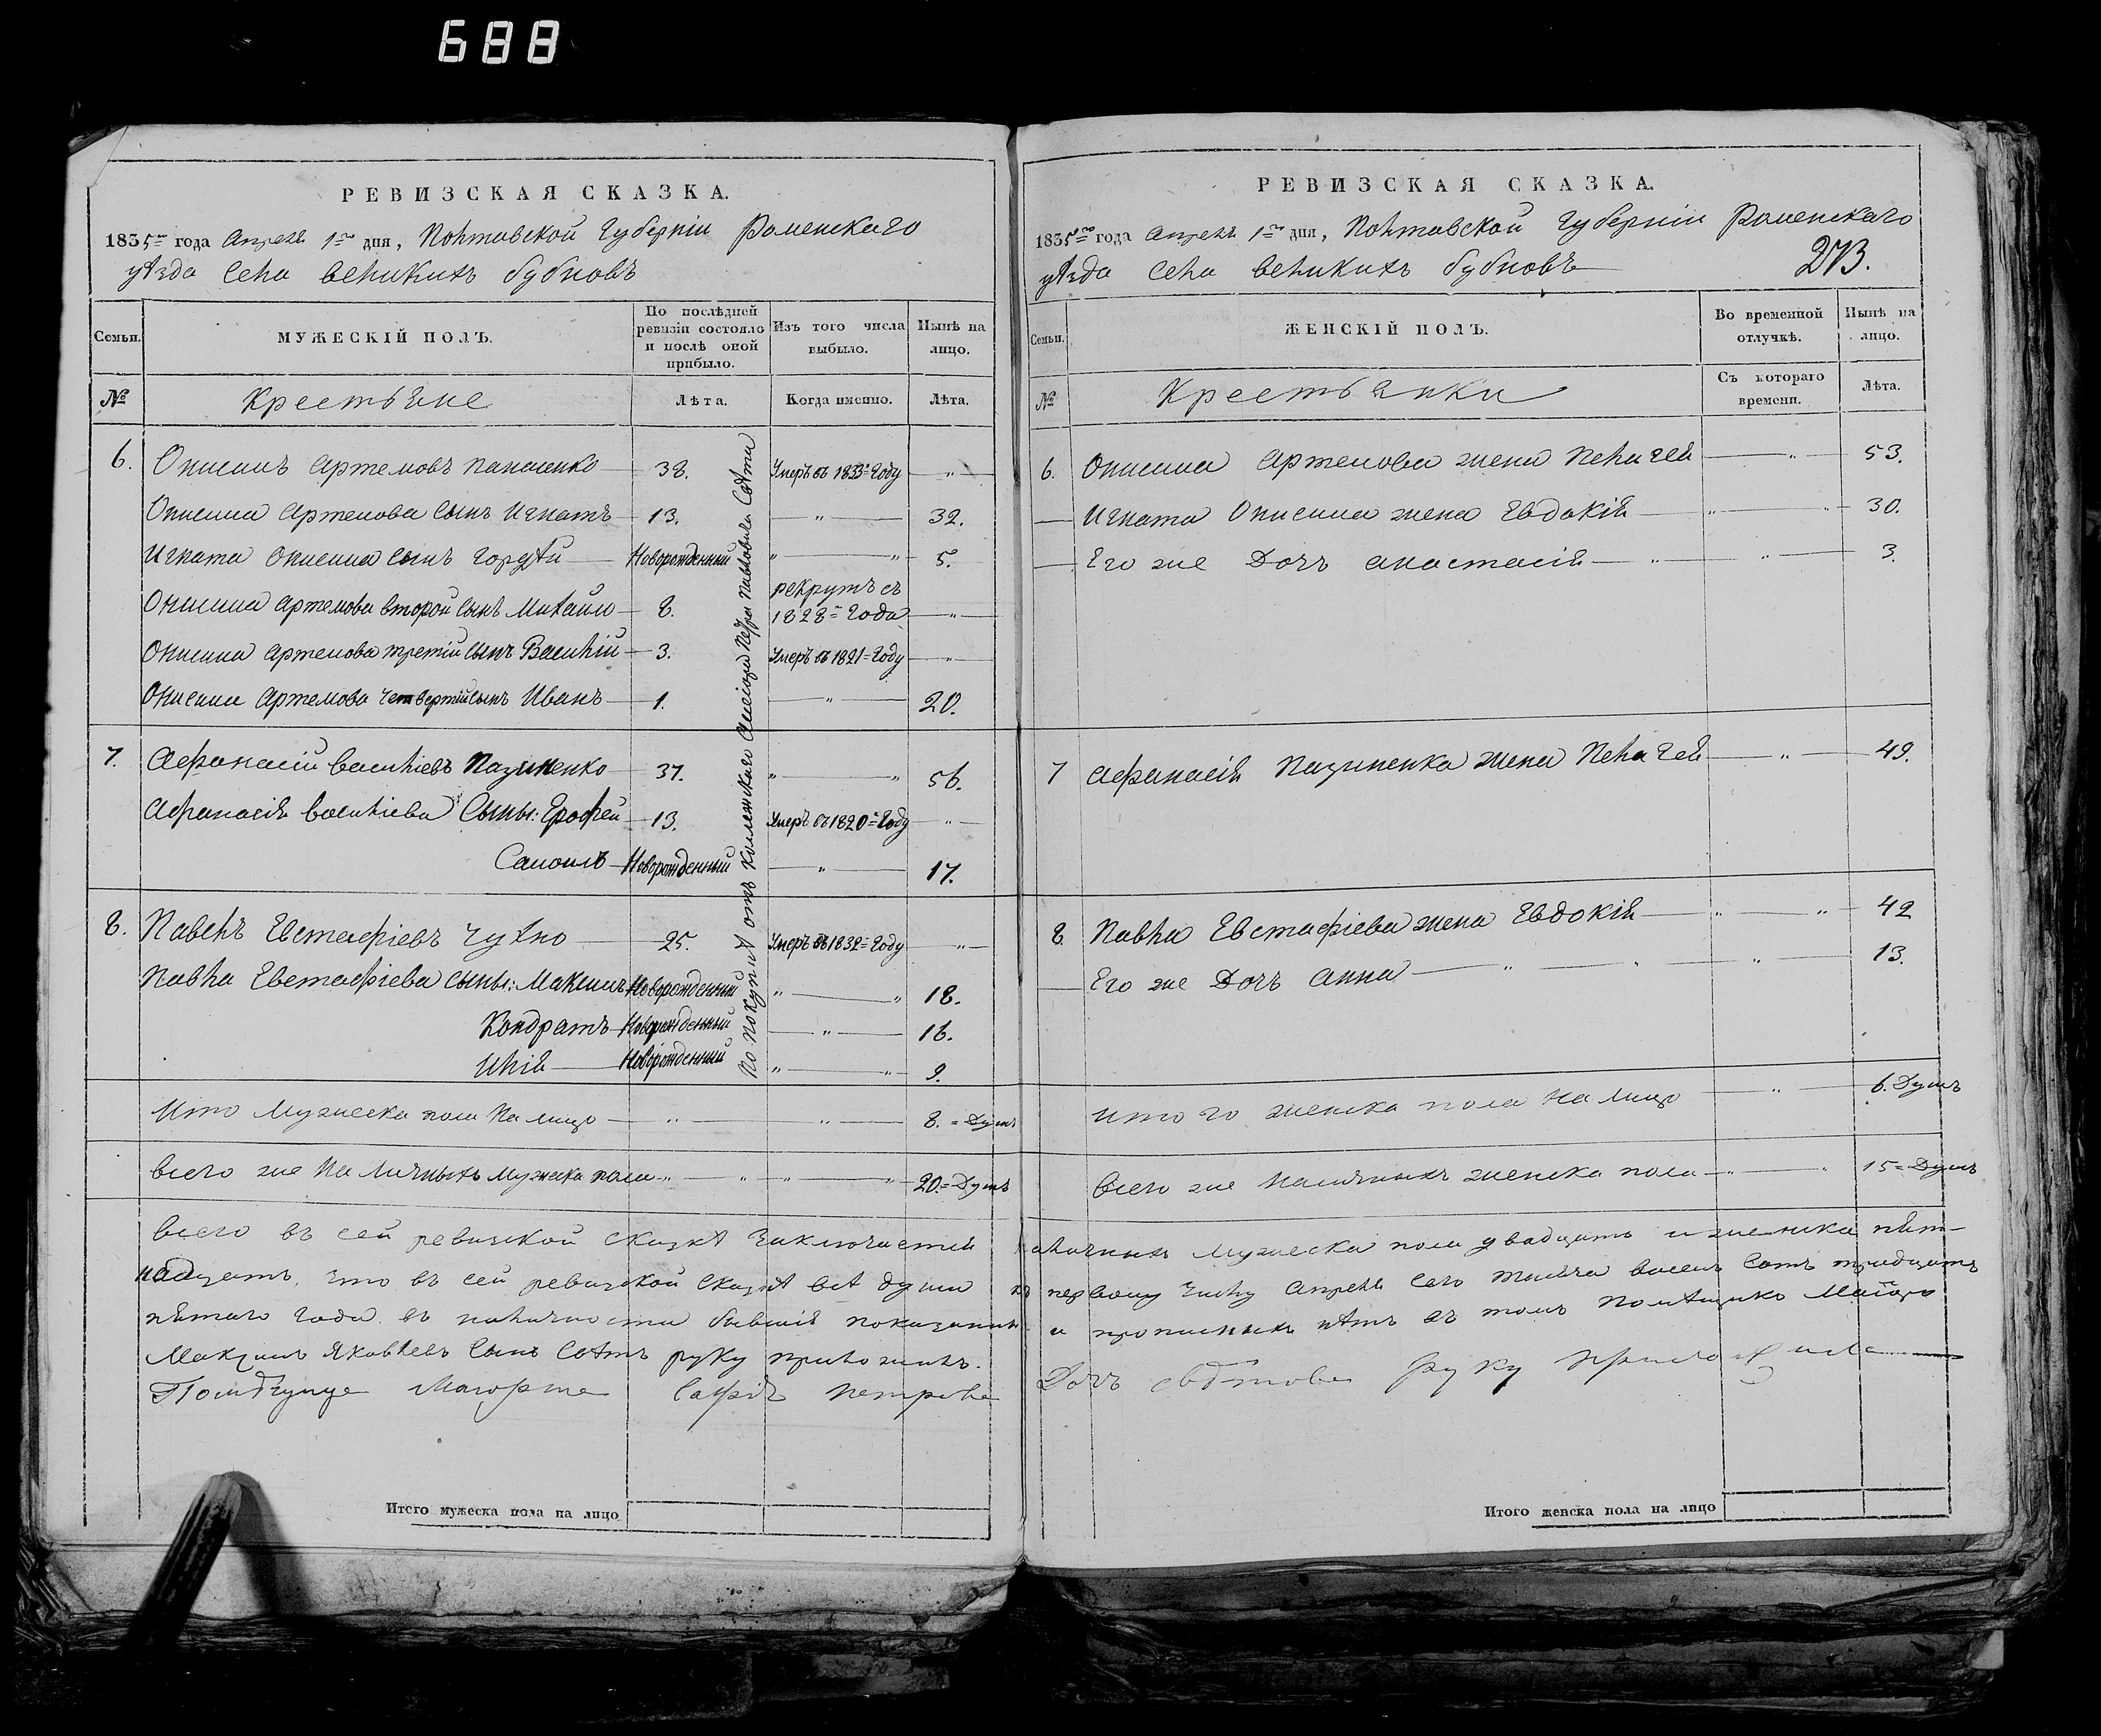 688
РЕВИЗСКАЯ СКАЗКА.
1835го года Апреля 1го дня, Полтавской Губерніи Роменскаго
уѣзда Села Великихъ Бубновъ
Семьи.
МУЖЕСКІЙ ПОЛЪ.
По послѣдней ревизіи состояло и послѣ оной прибыло.
Изъ того числа выбыло.
Нынѣ на лицо.
№
Крестьяне
Лѣта.
Когда именно.
Лѣта.
6. Онисимъ Артемовъ Панасенко 38. Умеръ въ 1833=Году "
Онисима Артемова Сынъ Игнатъ 13. " 32.
Игната Онисима Сынъ Гордѣй Новорожденный " " 5.
Онисима Артемова второй Сынъ Михайло 8. рекрутъ съ 1828=Года "
Онисима Артемова третій Сынъ Василій 3. Умеръ въ 1821=Году "
Онисима Артемова Четвертій Сынъ Иванъ 1. " 20.
7. Афанасій Василіевъ Пазиненко 37. " " 56.
Афанасія Василіева Сыны: Ерофей 13. Умеръ въ 1820=Году "
Самоилъ Новорожденный " 17.
8. Павелъ Евстафіевъ 25. Умеръ въ 1832=Году "
Павла Евстафіева Сыны: Максимъ Новорожденный " " 18.
Кондратъ Новорожденный " 16.
Илія Новорожденный " " 9.
По покупкѣ отъ Колежскаго Петра Павловича
Итго Мужеска пола На лицо " " 8.=Душъ
Всего же На Личныхъ мужеска пола " " " " 20.=Душъ
РЕВИЗСКАЯ СКАЗКА.
1835го года Апреля 1го дня, Полтавской Губерніи Роменскаго
уѣзда Села Великихъ Бубновъ
273.
Семьи.
ЖЕНСКІЙ ПОЛЪ.
Во временной отлучкѣ.
Нынѣ на лицо.
№
Крестьянки
Съ котораго времени.
Лѣта.
6. Онисима Артемова жена Пелагея " 53.
Игната Онисима жена Евдокія " " 30.
Его же Дочь Анастасія " " 3.
7 Афанасія Пазиненка жена Пелагея " 49.
8 Павла Евстафіева жена Евдокія " " 42
Его же Дочь Анна " " " 13.
Итого женска пола На лицо " 6.Душъ
Всего же Наличныхъ женска пола " " 15=Душъ
Всего въ сей ревизской Сказкѣ Заключается Наличныхъ Мужеска пола двадцать и женска пят-
надцать, Что въ сей ревизской Сказкѣ всѣ души къ первому Числу Апреля Сего тысяча восемь Сотъ тридцать
пятаго года въ наличности бывшія показанны и прописныхъ нѣтъ въ томъ
Яковлевъ Сынъ руку приложилъ.
Помѣщица Маіорша Петрова Дочь руку приложила
Итого мужеска пола на лицо
Итого женска пола на лицо